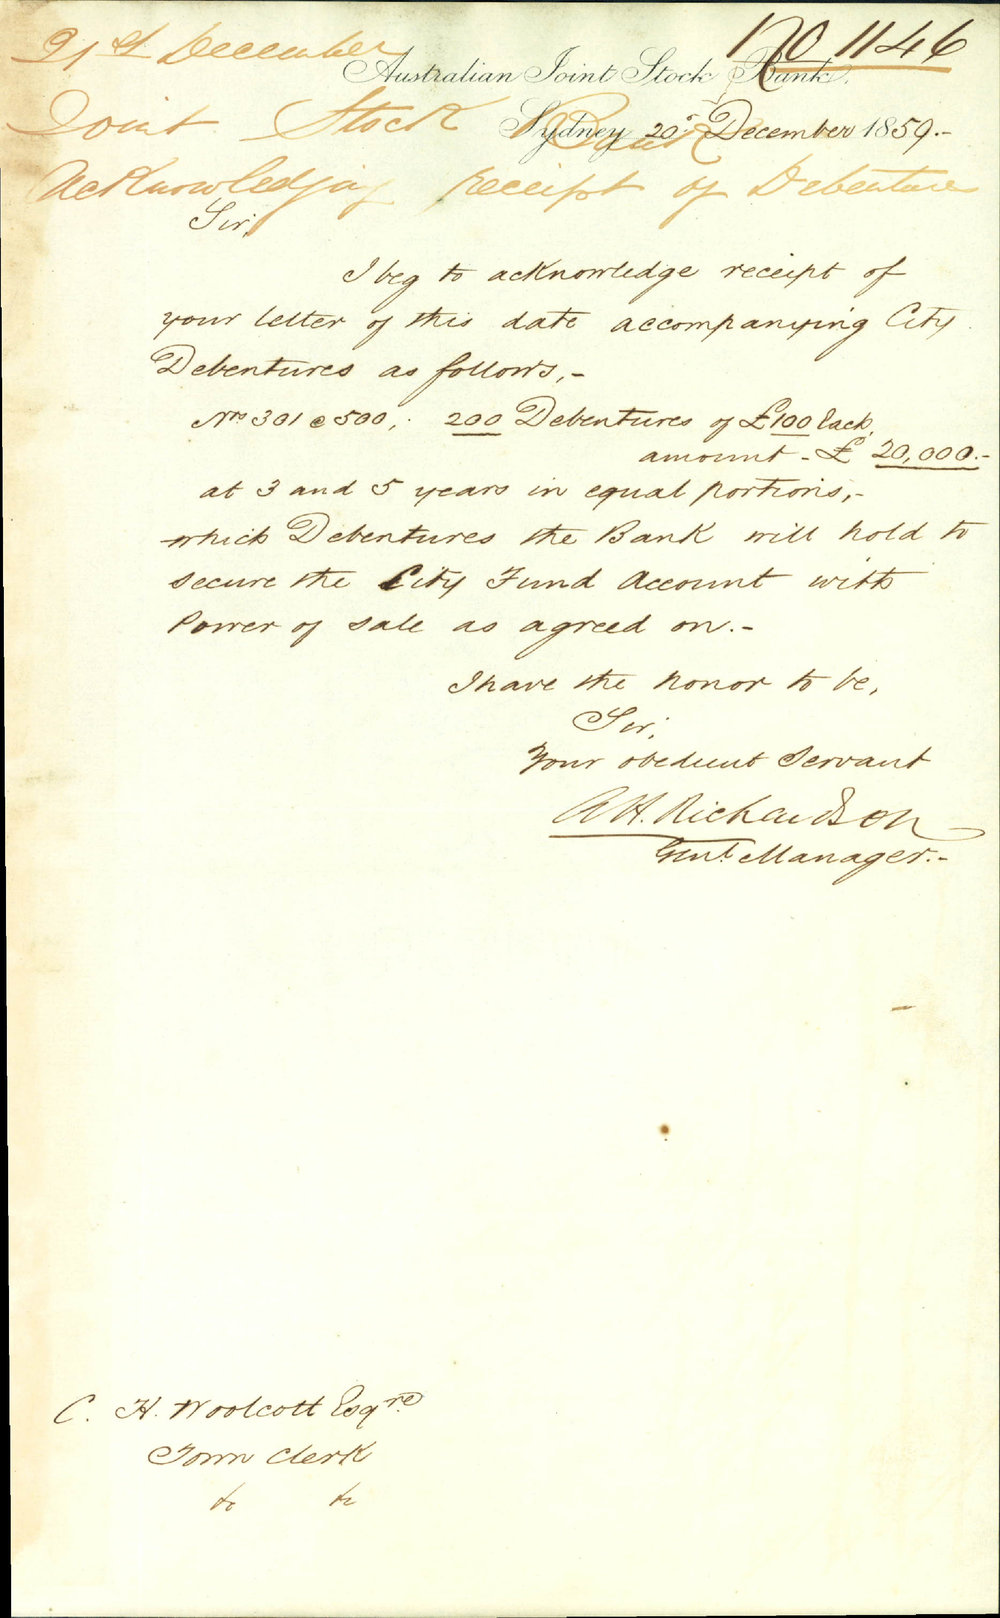 No 1146
21st December
Australian Joint Stock Bank.
Joint Stock Bank
Sydney 20th December 1859.-
Acknowledging receipt of Debenture
Sir,
I beg to acknowledge receipt of
your letter of this date accompanying City
Debentures as follows,-
Nos 301 @ 500,. 200 Debentures of £100 Each,
amount - £ 20,000.-
at 3 and 5 years in equal portions,-
which Debentures the Bank will hold to
secure the City Fund Account with
Power of sale as agreed on.-
I have the honor to be,
Sir,
Your obedient Servant
A H. Richardson
Genl. Manager.-
C. H. Woolcott Esqre
Town Clerk
&c &c